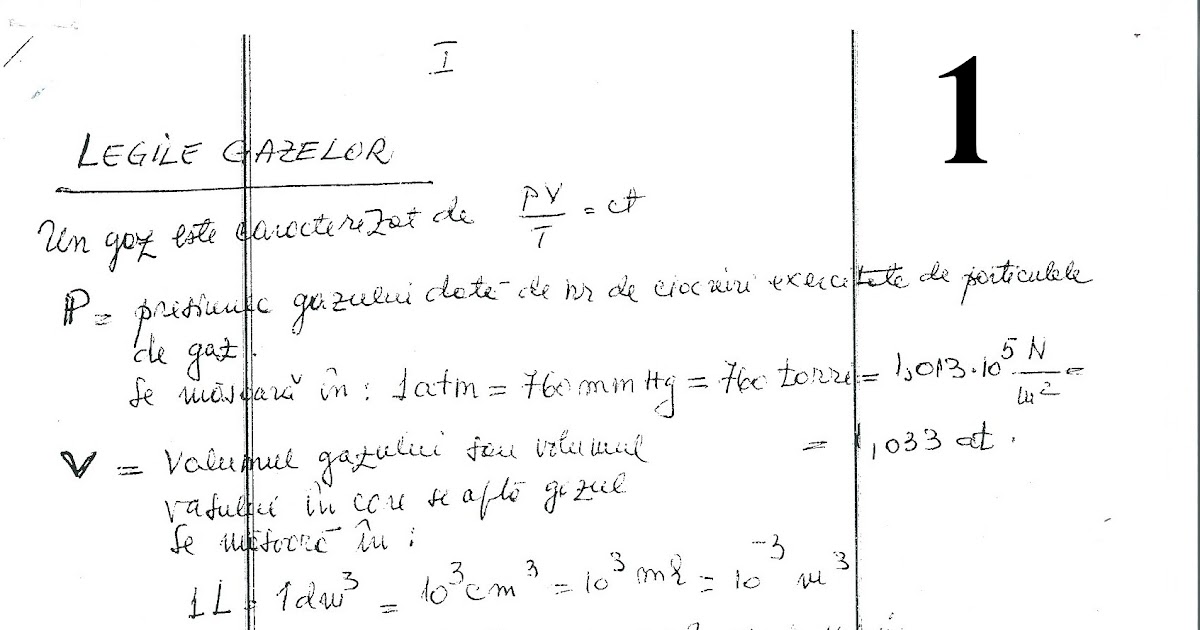 I
1
LEGILE GAZELOR
Un gaz este caracterizat de PV/T = ct
P = presiunea gazului dată de nr de ciocniri exercitate de particulele
de gaz.
Se măsoară în: 1atm = 760 mm Hg = 760 torri = 1,013·10⁵ N/m² =
= 1,033 at.
V = Volumul gazului sau volumul
vasului în care se află gazul
Se măsoară în:
1L = 1dm³ = 10³cm³ = 10³ ml = 10⁻³ m³